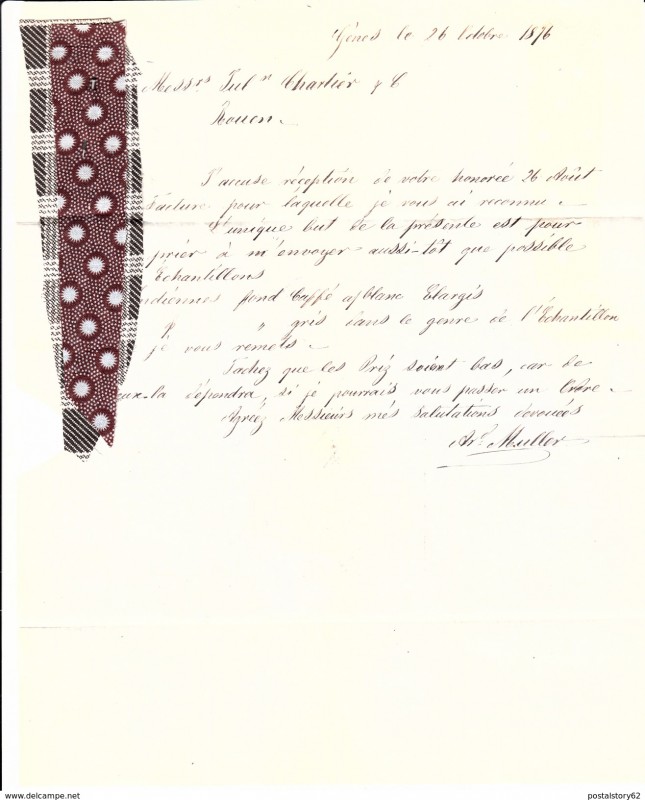 Gênes le 26 Octobre 1876
Mess.rs Jul.n Chartier & C
Rouen.
J'accuse réception de votre honorée 26 Août
facture pour laquelle je vous ai reconnu.
L'unique but de la présente est pour
prier à m'envoyer aussi-tôt que possible
Echantillons
ndiennes fond Caffé a/blanc Elargis
" gris dans le genre de l'Echantillon
je vous remets.
Tachez que les Prix soient bas, car de
eux-la dépendra, si je pourrais vous passer un Ordre.
Agréez Messieurs més salutations dévouées
Ar.d Muller
www.delcampe.net
postalstory62